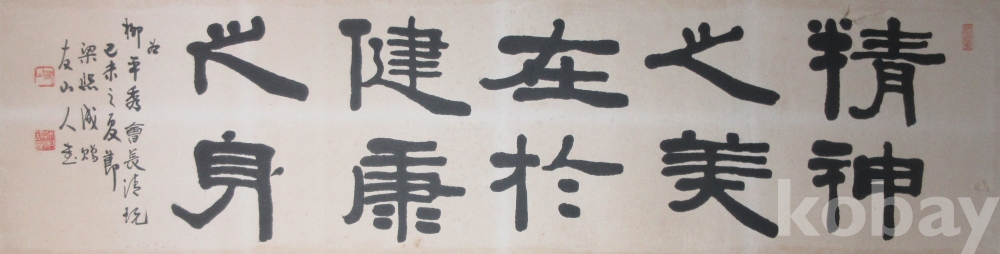 精神
之美
在於
健康
之身
柳平秀會長清玩
己未之夏節
梁熙成贈
友山人書
kobay